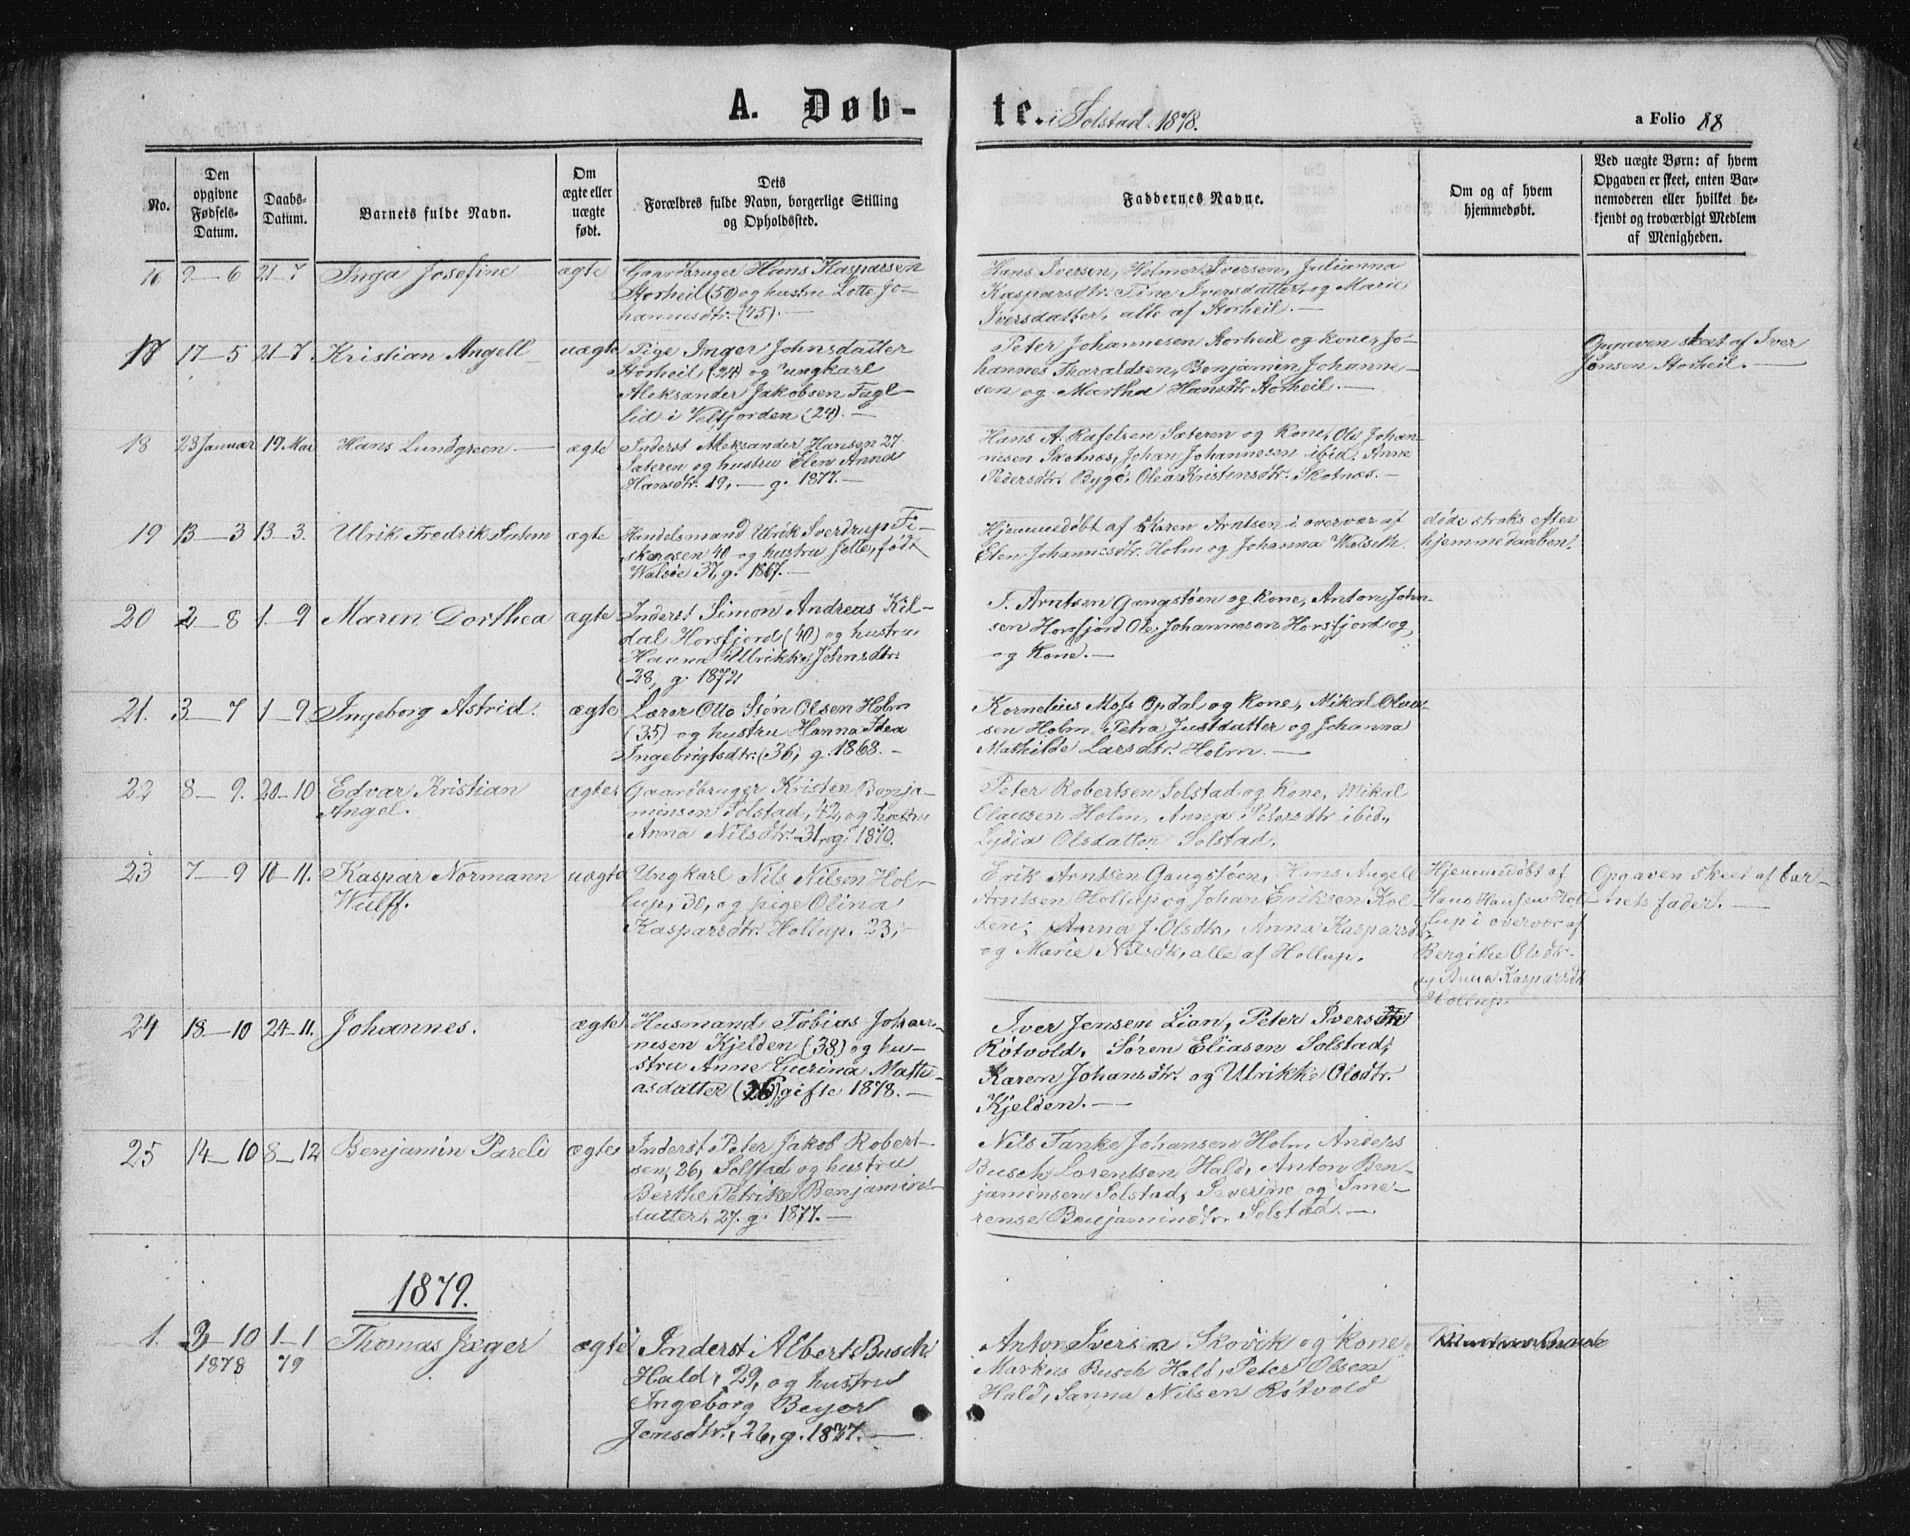 A. Døbte. i Solstad 1878.
a Folio 88
No.
Den opgivne Fødsels-Datum.
Daabs-Datum.
Barnets fulde Navn.
Om ægte eller uægte født.
Dets Forældres fulde Navn, borgerlige Stilling og Opholdssted.
Faddernes Navne.
Om og af hvem hjemmedøbt.
Ved uægte Børn: af hvem Opgaven er skeet, enten Barnemoderen eller hvilket bekjendt og troværdigt Medlem af Menigheden.
16 9-6 21-7 Inga Josefine ægte Gaardbruger Hans Kasparsen
Storheil (50) og hustru Lotte Jo-
hannesdtr. (45). —
Hans Iversen, Holmer Iversen, Julianna
Kasparsdtr. Tine Iversdatter, og Marie
Iversdatter, alle af Storheil. —
17 17-5 21-7 Kristian Angell uægte Pige Inger Johnsdatter
Storheil (24) og ungkarl
Aleksander Jakobsen Fagl-
lid i Velfjorden (24). —
Peter Johannesen Storheil og kone, Jo-
hannes Tharaldsen, Benjamin Johanne-
sen og Martha Hansdtr. Storheil. —
Opgaven skeet af Iver
Jensen Storheil. —
18 23 Januar 17. Mai Hans Lundgreen — ægte Inderst Aleksander Hansen 27.
Sæteren og hustru Elen Anna
Hansdtr. 19, — g. 1877. —
Hans A. Rafelsen Sæteren og Kone, Ole Johan-
nesen Skotnæs, Johan Johannesen ibid. Anne
Pedersdtr. Bygö, Olea Kristensdtr. Skotnæs. —
19 13-3 13-3. Ulrik Fredrik Suhm ægte Handelsmand Ulrik Sverdrup Fi-
skerosen 40 og hustru Jotte, født
Walsöe 37, g. 1867. —
Hjemmedøbt af Karen Arntsen i overvær af
Elen Johannesdtr. Holm og Johanna Walseth.
døde straks efter
hjemmedaaben.
20 2-8 1-9 Maren Dorthea ægte Inderst Simon Andreas Kil-
dal Horsfjord (40) og hustru
Hanna Ulrikke Johnsdtr.
(28, g. 1872
T. Arntsen Gangstøen og kone, Anton John-
sen Horsfjord Ole Johannesen Horsfjord og
og Kone. —
21. 3-7 1-9 Ingeborg Astrid. ægte Lærer Otto Siön Olsen Holm
(35) og hustru Hanna Thea
Ingebrigtsdtr. (36, g. 1868. —
Kornelius Moss Opdal og kone, Mikal Olau-
sen Holm, Petra Justdatter og Johanna
Mathilde Larsdtr. Holm. —
22 8-9. 20-10 Edvar Kristian
Angel.
ægte Gaardbruger Kristen Benja-
minsen Solstad, 42, og hustru
Anna Nilsdtr. 31, g. 1870.
Peter Robertsen Solstad og Kone, Mikal
Olaussen Holm, Anna Petersdtr ibid.,
Lydia Olsdatter Solstad.
23 7-9 10-11. Kaspar Normann
Wulff.
uægte Ungkarl Nils Nilsen Hol-
lup, 30, og pige Olina
Kasparsdtr. Hollup. 23, —
Erik Arntsen Gangstøen, Hans Angell
Arntsen Hollup og Johan Eriksen Kol-
den; Anna J. Olsdtr, Anna Kasparsdtr.
og Marie Nilsdtr, alle af Hollup.
Hjemmedøbt af
Hans Hansen Hol-
lup i overvær af
Bergitte Olsdtr.
og Anna Kasparsdtr
Hollup.
Opgaven skeet af bar-
nets fader. —
24 18-10 24-11. Johannes. ægte Husmand Tobias Johan-
nesen Kjelden (38) og hu-
stru Anne Guerina Matti-
asdatter (26) gifte 1878. —
Iver Jensen Lian, Peter Iversen
Rötvold. Sören Eliasen Solstad;
Karen Johansdtr. og Ulrikke Olsdtr.
Kjelden. —
25 14-10 8-12 Benjamin Pareli ægte Inderst Peter Jakob Robert-
sen, 26, Solstad og hustru
Berthe Petrike Benjamins-
datter, 27. g. 1877. —
Nils Tanke Johansen Holm Anders
Busch Lorentsen Hald, Anton Ben-
jaminsen Solstad, Severine og Ime-
rense Benjamindtr. Solstad. —
1879.
1. 3-10 1878 1-1 79 Thomas Jæger ægte Inderst Albert Busch
Hald, 29, og hustru
Ingeborg Beyer
Jensdtr., 26, g. 1877. —
Anton Iversen Skövik og kone,
Markus Busch Hald, Peter Olsen
Hald, Sanna Nilsen Rötvold